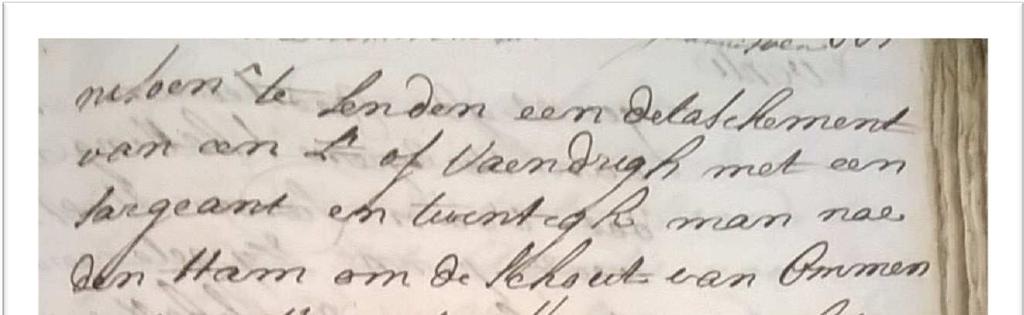 nisoen te senden een detaschement
van een Lt of Vaendrigh met een
sargeant en twentegh man nae
den Ham om de schout van Ommen